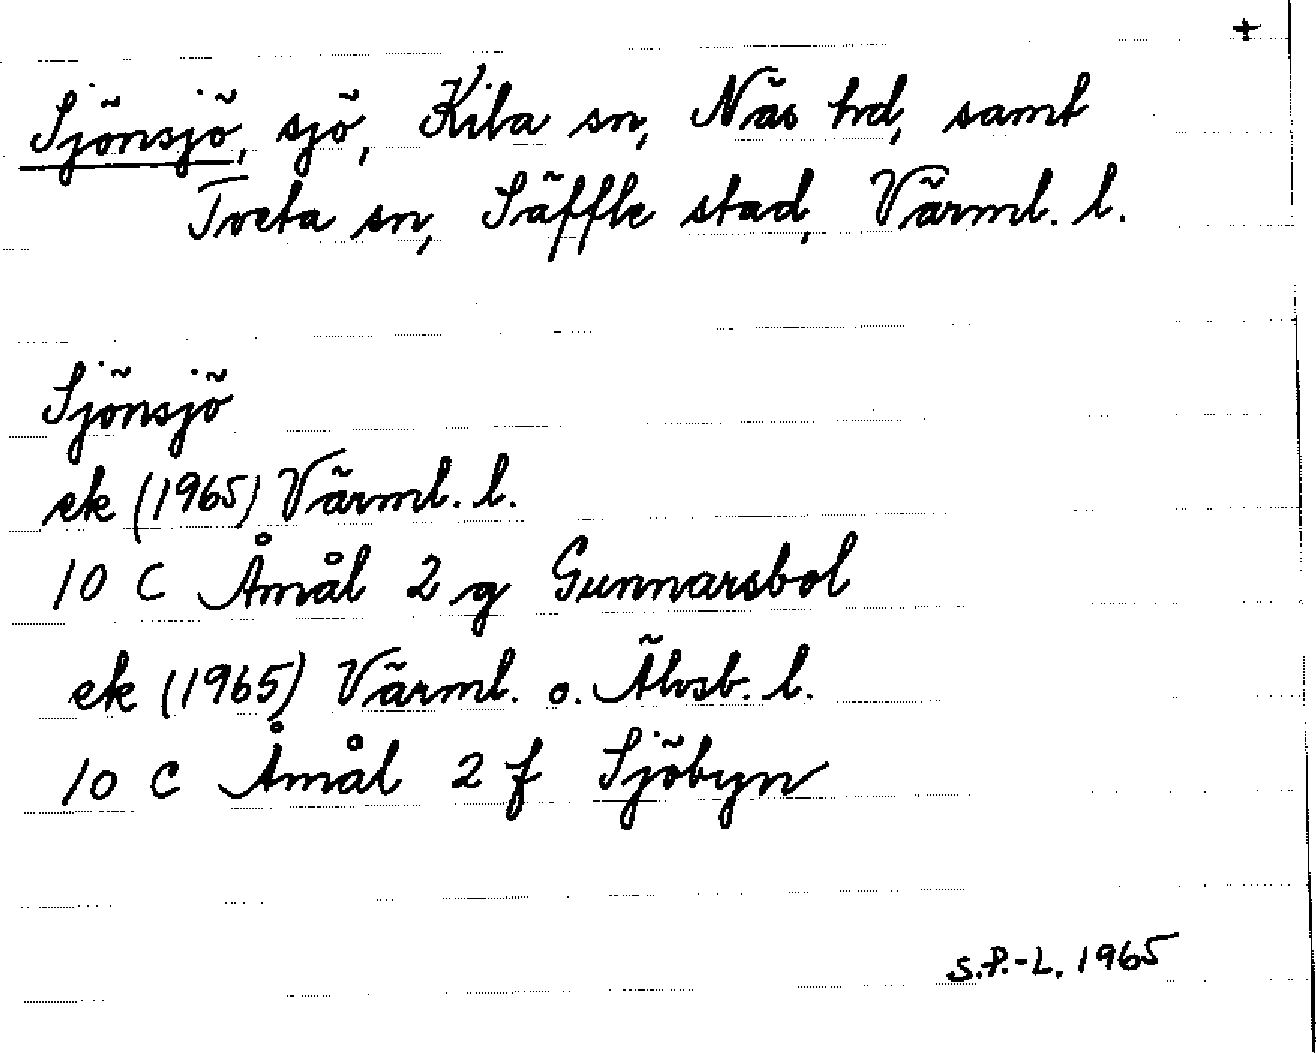 +
Sjönsjö, sjö, Kila sn, Näs hd, samt
Tveta sn, Säffle stad, Värml. l.
Sjönsjö
ek (1965) Värml. l.
10 C Åmål 2 g Gunnarsbol
ek (1965) Värml. o. Älvsb. l.
10 C Åmål 2 f Sjöbyn
S.P.-L. 1965